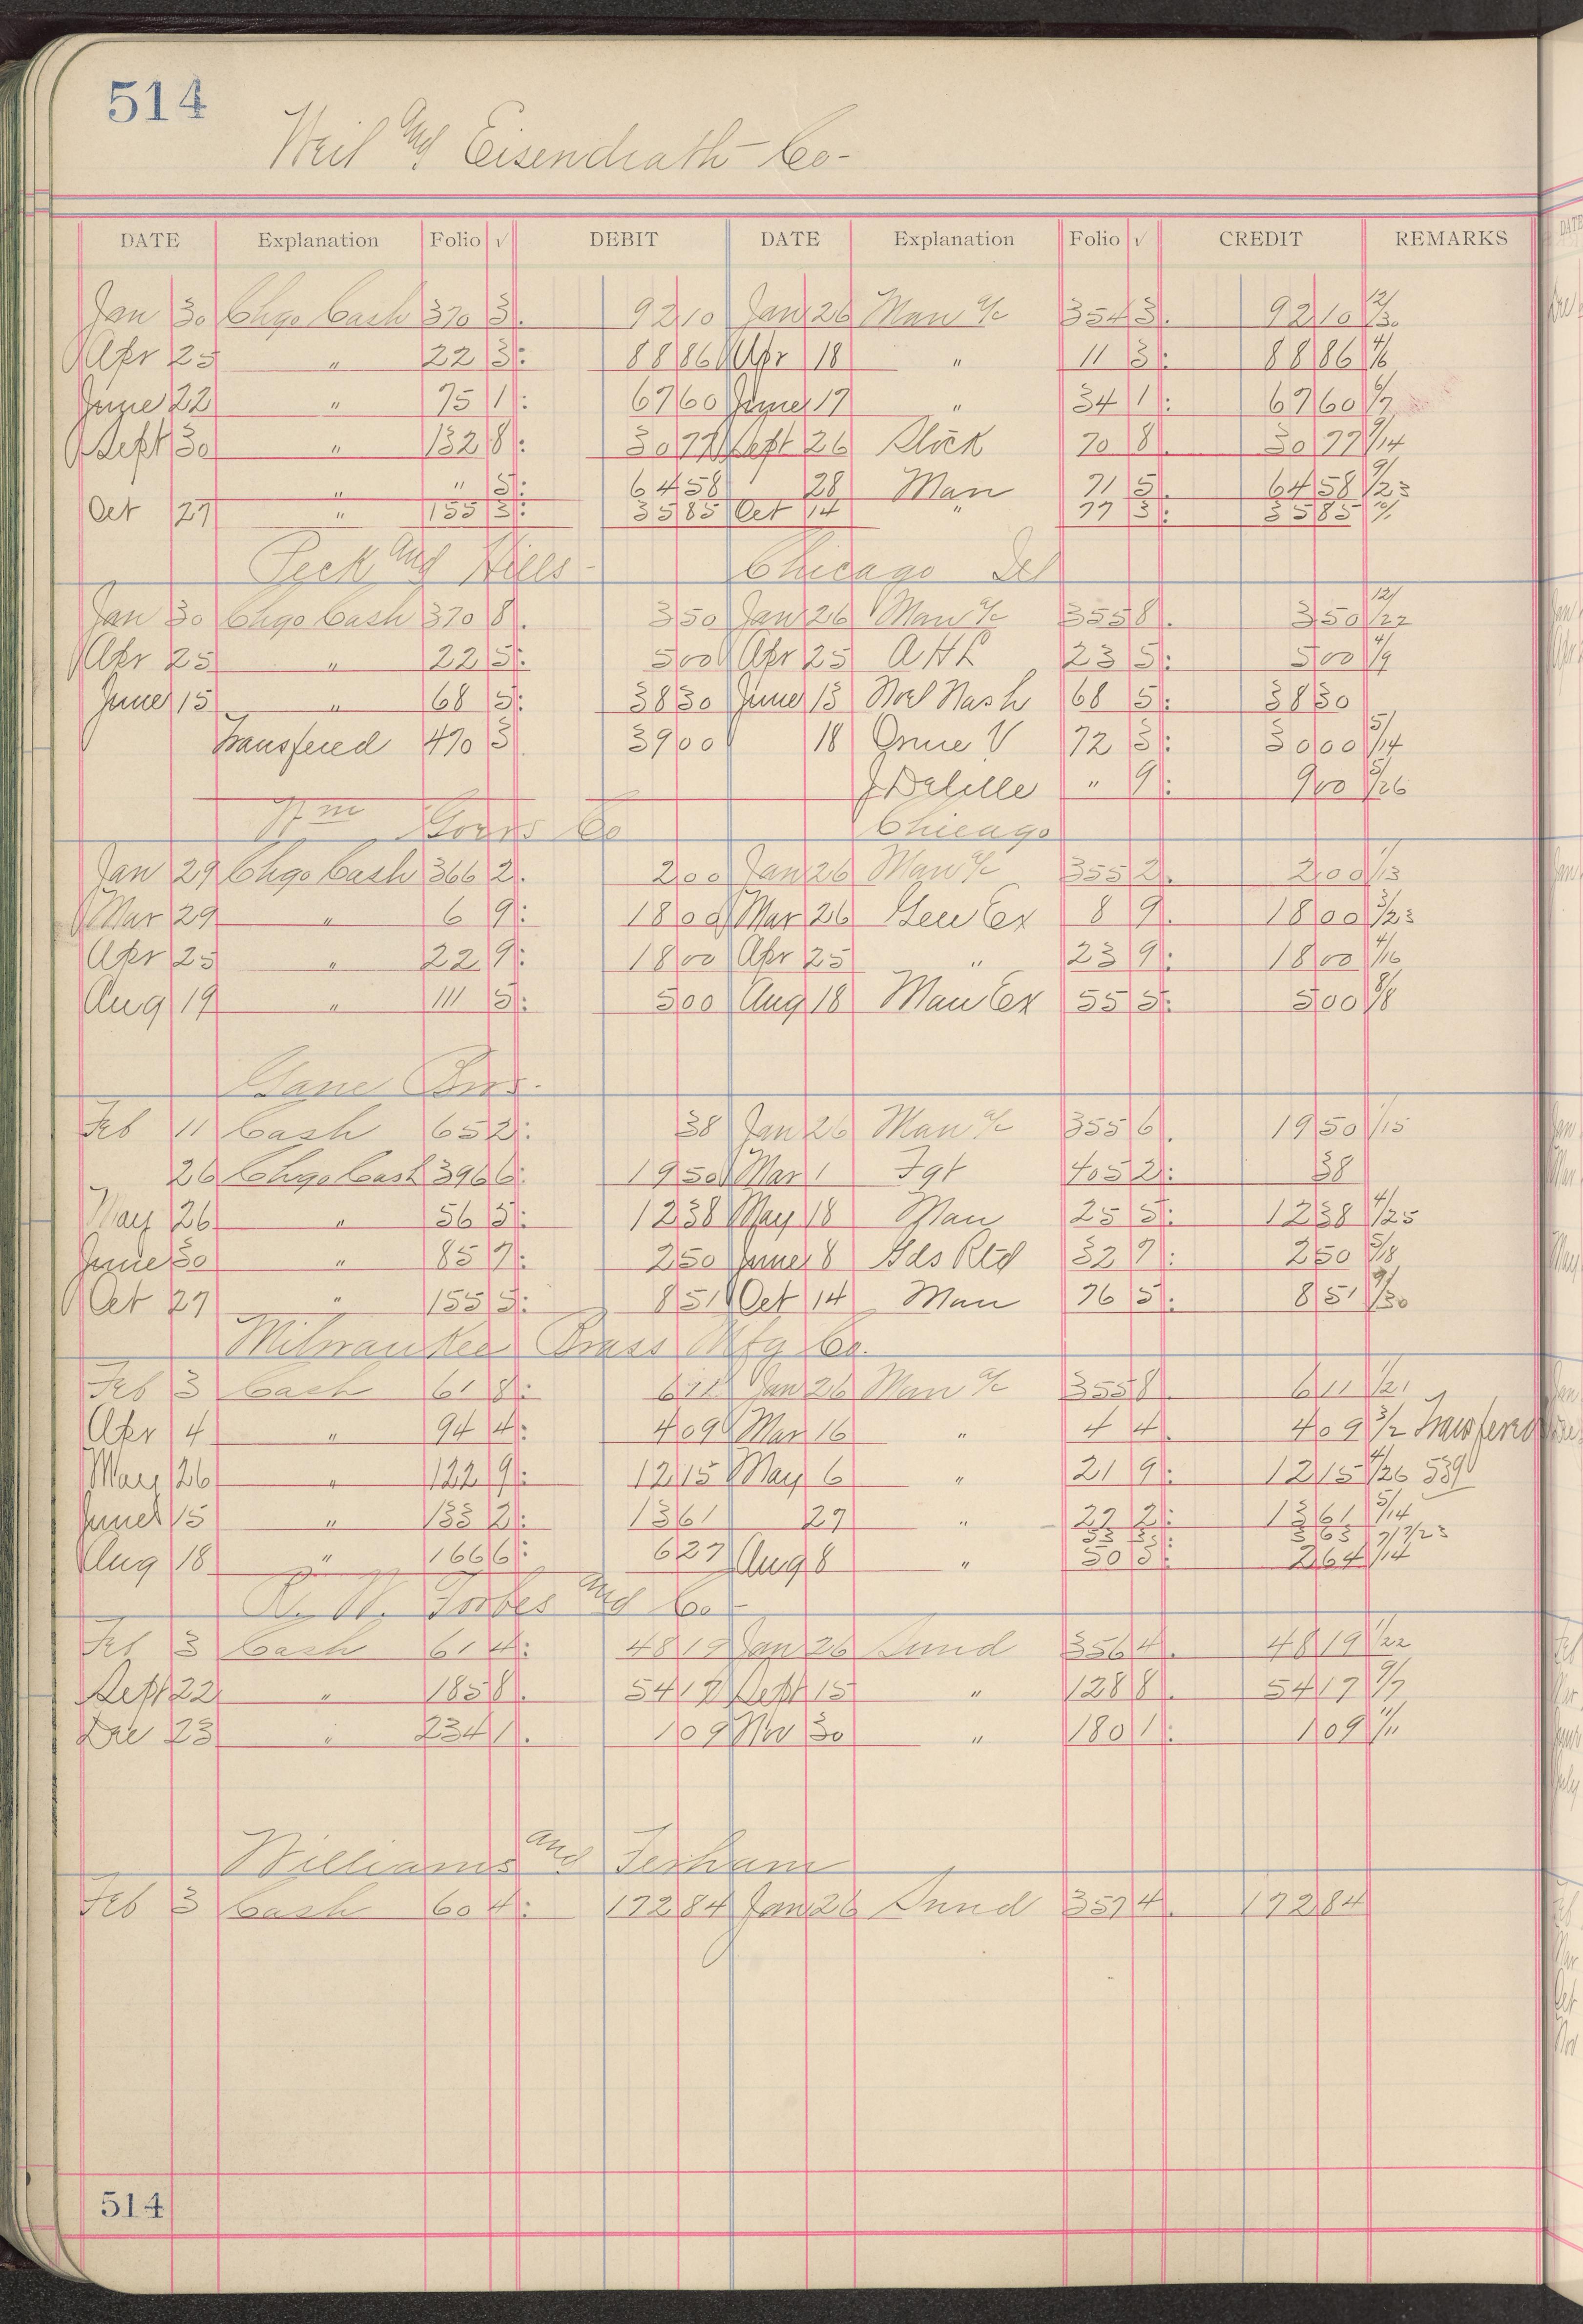 514
Weil and Eisendrath Co-
DATE Explanation Folio √ DEBIT DATE Explanation Folio √ CREDIT REMARKS
Jan 30 Chgo Cash 370 3. 92 10 Jan 26 Man a/c 354 3. 92 10 12/30
Apr 25 " 22 3: 88 86 Apr 18 " 11 3: 88 86 4/6
June 22 " 75 1: 67 60 June 17 " 34 1: 67 60 6/7
Sept 30 " 132 8: 30 77 Sept 26 Stock 70 8. 30 77 9/14
" " 5: 64 58 28 Man 71 5. 64 58 9/23
Oct 27 " 155 3: 35 85 Oct 14 " 77 3: 35 85
Peck and Hills - Chicago Ill
Jan 30 Chgo Cash 370 8. 3 50 Jan 26 Man a/c 355 8. 3 50 12/22
Apr 25 " 22 5: 5 00 Apr 25 23 5: 5 00 4/9
June 15 " 68 5: 38 30 June 13 Nash 68 5: 38 30
Transfered 470 3 39 00 18 72 3: 30 00 5/14
" 9: 9 00 5/26
Wm Co Chicago
Jan 29 Chgo Cash 366 2. 2 00 Jan 26 Man a/c 355 2. 2 00 1/13
Mar 29 " 6 9: 18 00 Mar 26 Gen Ex 8 9. 18 00 3/23
Apr 25 " 22 9: 18 00 Apr 25 " 23 9: 18 00 4/16
Aug 19 " 111 5: 5 00 Aug 18 Man Ex 55 5: 5 00 8/8
Gane Bros.
Feb 11 Cash 65 2: 38 Jan 26 Man a/c 355 6. 19 50 1/15
26 Chgo Cash 396 6: 19 50 Mar 1 Fgt 405 2: 38
May 26 " 56 5: 12 38 May 18 Man 25 5: 12 38 4/25
June 30 " 85 7: 2 50 June 8 Gds Rtd 32 7: 2 50 5/18
Oct 27 " 155 5: 8 51 Oct 14 Man 76 5: 8 51 9/30
Milwaukee Brass Mfg Co.
Feb 3 Cash 61 8: 6 11 Jan 26 Man a/c 355 8. 6 11 1/21
Apr 4 " 94 4: 4 09 Mar 16 " 4 4. 4 09 3/2 Transfered
May 26 " 122 9: 12 15 May 6 " 21 9: 12 15 4/26 539
June 15 " 133 2: 13 61 27 " 27 2: 13 61 5/14
53 3: 3 63 7/23
Aug 18 " 166 6: 6 27 Aug 8 " 50 5: 2 64 7/14
R. W. Forbes and Co -
Feb 3 Cash 61 4: 48 19 Jan 26 Sund 356 4. 48 19 1/22
Sept 22 " 185 8. 54 17 Sept 15 " 128 8. 54 17 9/7
Dec 23 " 234 1. 1 09 Nov 30 " 180 1: 1 09 11/11
Williams and
Feb 3 Cash 60 4: 172 84 Jan 26 Sund 357 4. 172 84
514